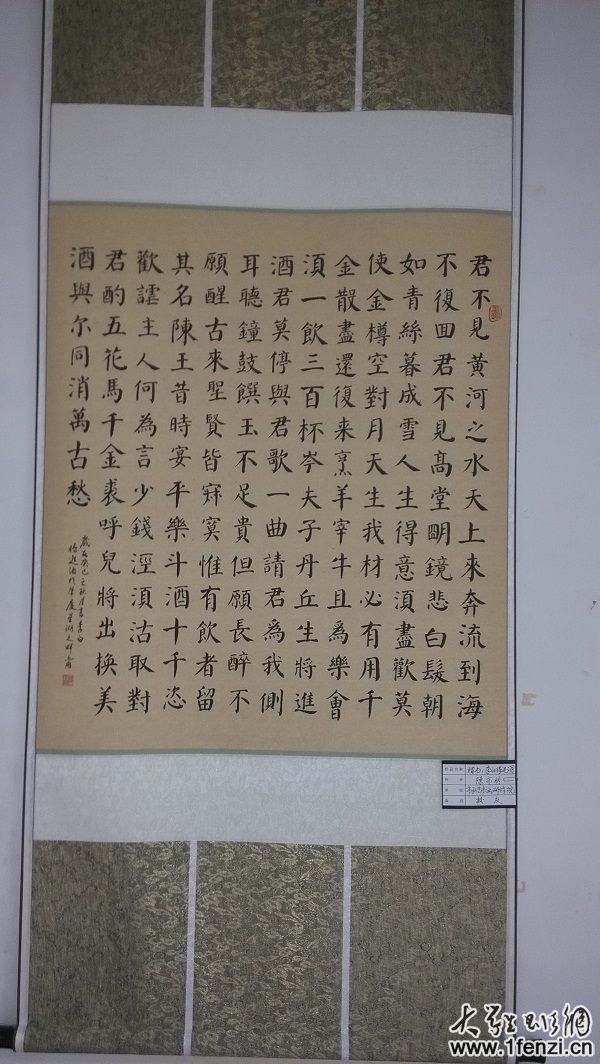 君不見黃河之水天上來奔流到海
不復回君不見高堂明鏡悲白髮朝
如青絲暮成雪人生得意須盡歡莫
使金樽空對月天生我材必有用千
金散盡還復来烹羊宰牛且為樂會
須一飲三百杯岑夫子丹丘生將進
酒君莫停與君歌一曲請君為我側
耳聽鐘鼓饌玉不足貴但願長醉不
願醒古來聖賢皆寂寞惟有飲者留
其名陳王昔時宴平樂斗酒十千恣
歡謔主人何為言少錢逕須沽取對
君酌五花馬千金裘呼兒將出換美
酒與尔同消萬古愁
歲在癸巳之秋月書李白
大学生创业網
www.1fenzi.cn